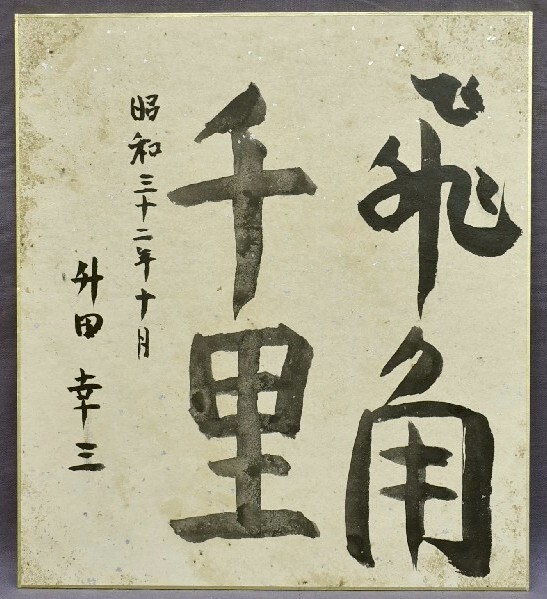 飛角
千里
昭和三十二年十月
升田幸三